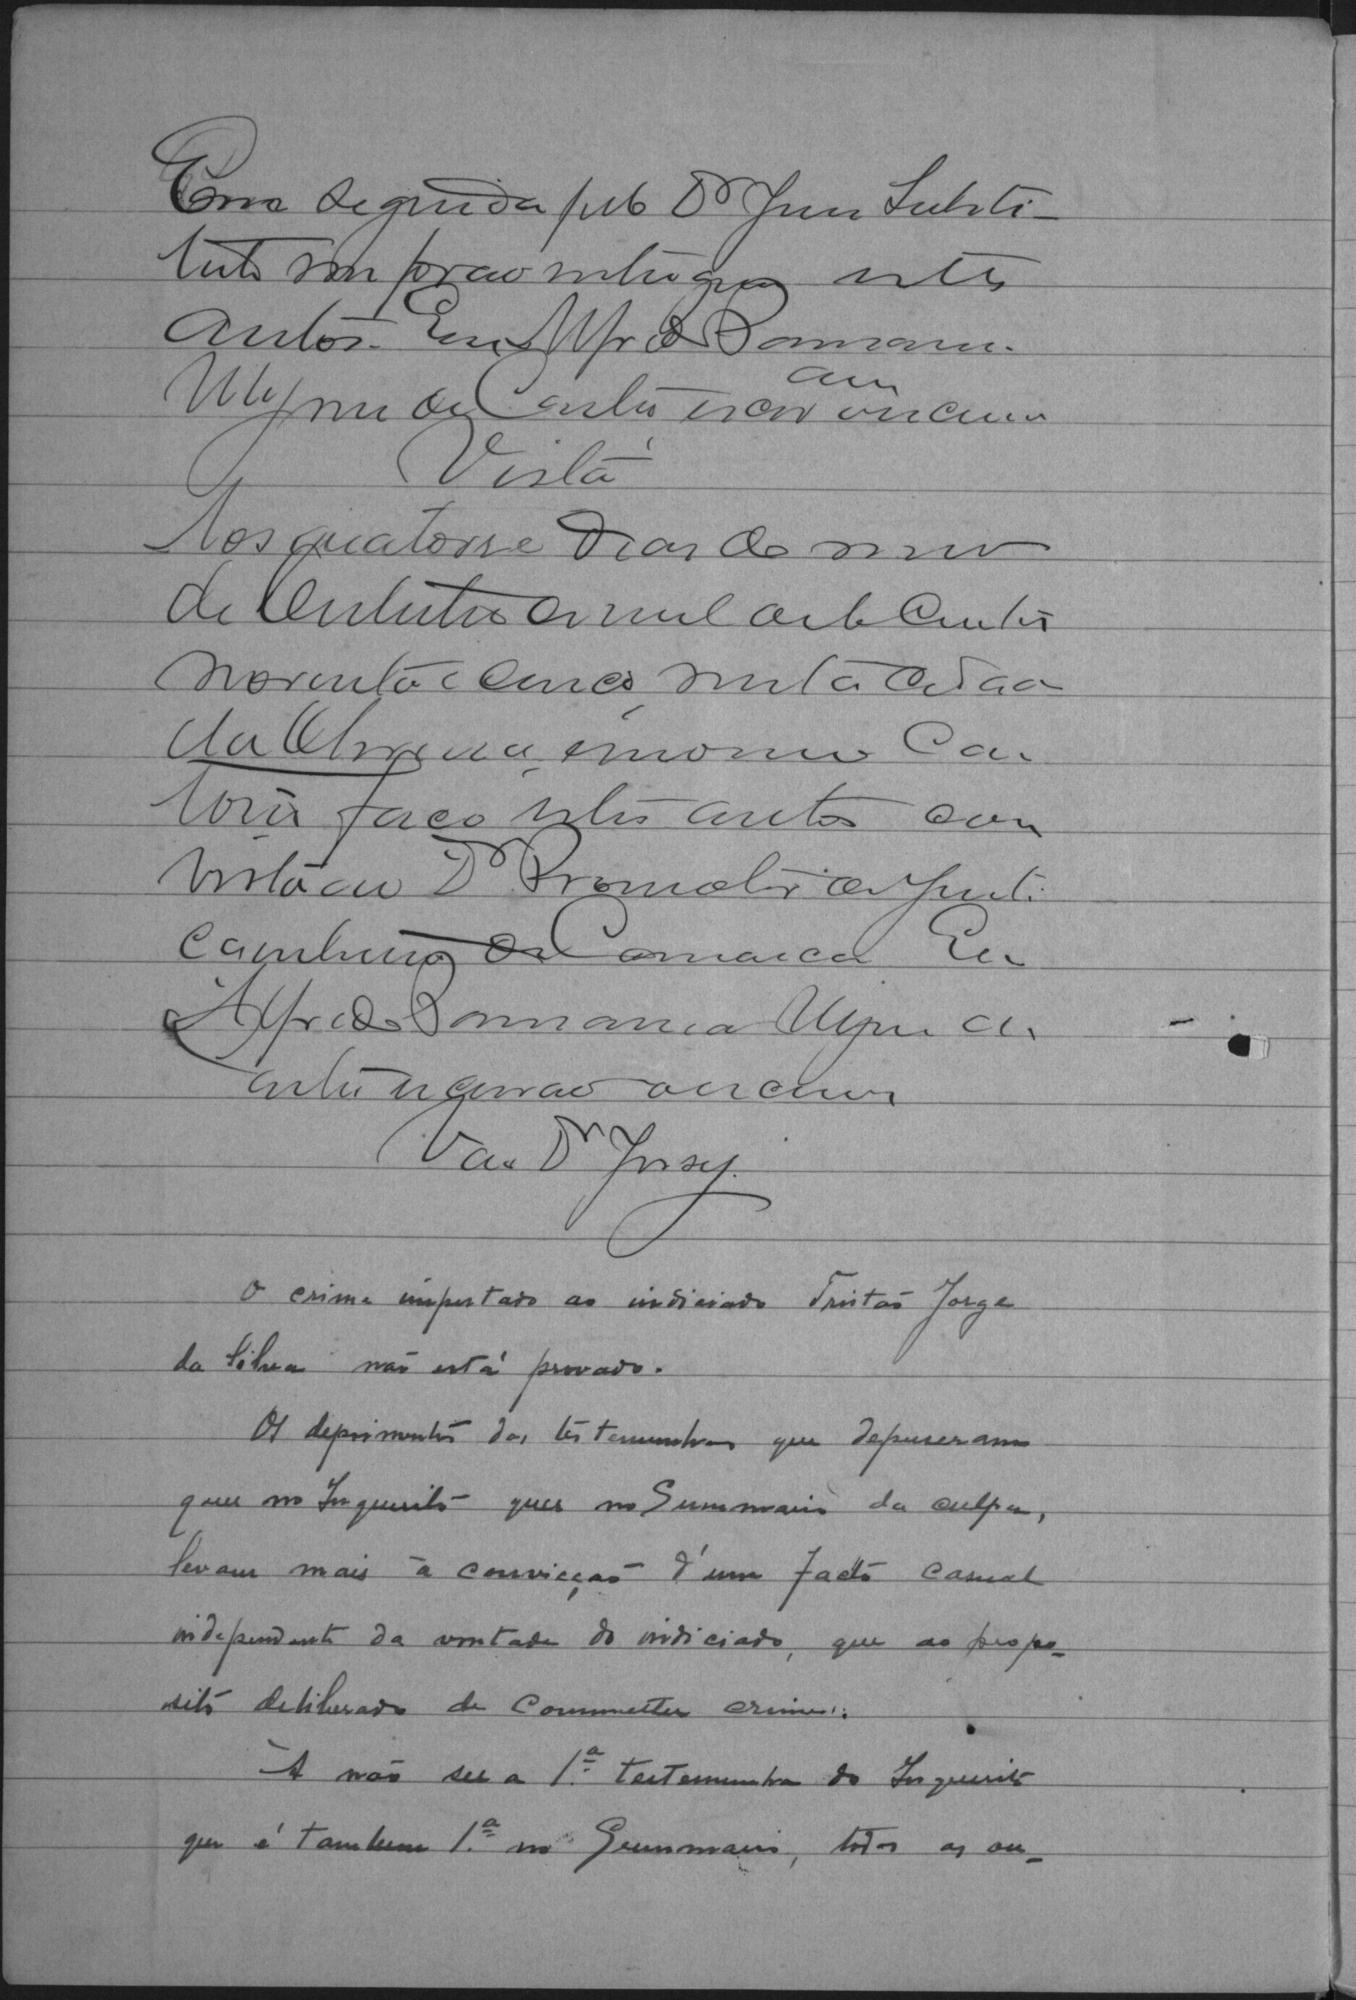 Em seguida pelo Dr Juiz Substi-
tuto me forão entregues estes
autos. Eu Alfredo
de Castro escrivão
am
Vista
Aos quatorse dias do mes
de Outubro de mil oito centos
noventa e cinco, nesta cidade
da Oliveira, em meu Car
torio faço estes autos com
vista ao Dr Promotor de Justi
ca Comarca Eu
Alfredo
escrivão escrevi
Va. Dr
O crime imputado ao indiciado Tristão Jorge
da Silva não está provado.
Os depoimentos das testemunhas que depuseram
quer no Inquerito quer no Summario da culpa,
levam mais à convicção d'um facto casual
independente da vontade do indiciado, que ao propo-
sito deliberado de commetter crime.
A não ser a 1.ª testemunha do Inquerito
que é tambem 1.ª no Summario, todas as ou-